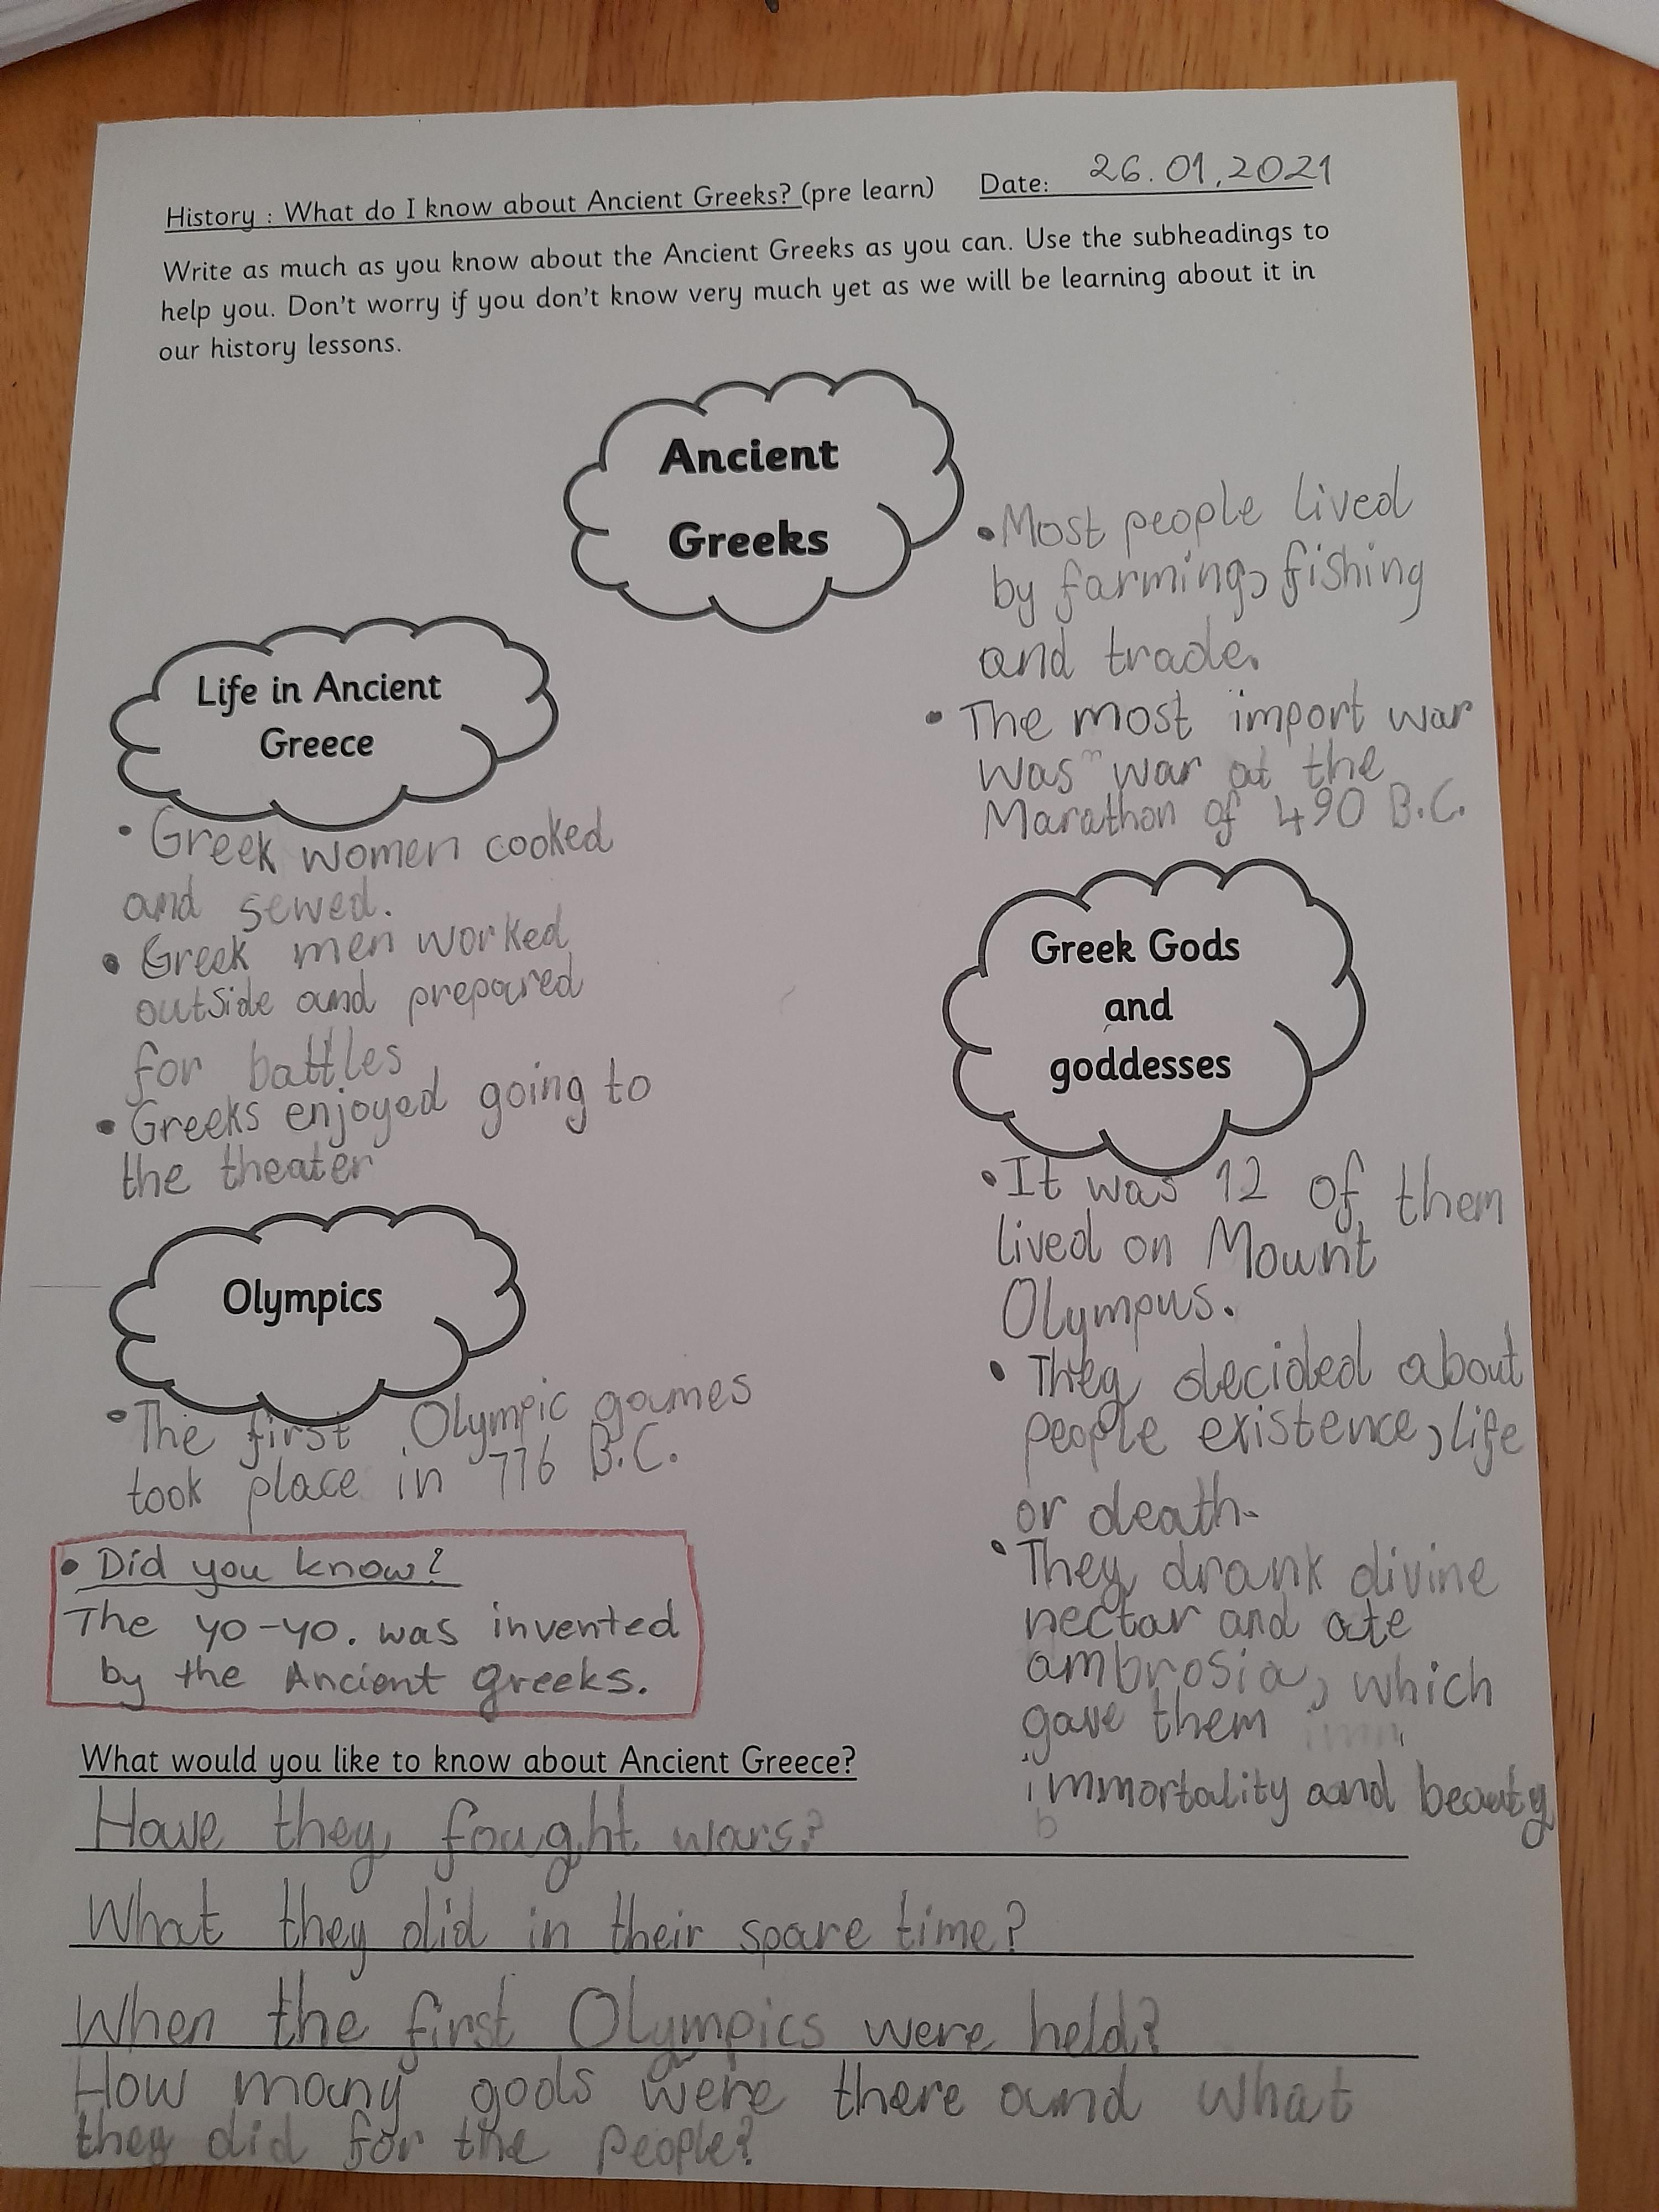 History : What do I know about Ancient Greeks? (pre learn) Date: 26.01.2021
Write as much as you know about the Ancient Greeks as you can. Use the subheadings to
help you. Don't worry if you don't know very much yet as we will be learning about it in
our history lessons.
Ancient
Greeks
• Most people lived
by farming, fishing
and trade.
• The most import war
was war at the
Marathon of 490 B.C.
Life in Ancient
Greece
• Greek women cooked
and sewed.
• Greek men worked
outside and prepared
for battles
• Greeks enjoyed going to
the theater
Greek Gods
and
goddesses
• It was 12 of them
lived on Mount
Olympus.
• They decided about
people existence, life
or death.
• They drank divine
nectar and ate
ambrosia, which
gave them
immortality and beauty
b
Olympics
• The first Olympic games
took place in 776 B.C.
• Did you know?
The yo-yo. was invented
by the Ancient greeks.
What would you like to know about Ancient Greece?
Have they fought wars?
What they did in their spare time?
When the first Olympics were held?
How many gods were there and what
they did for the people?